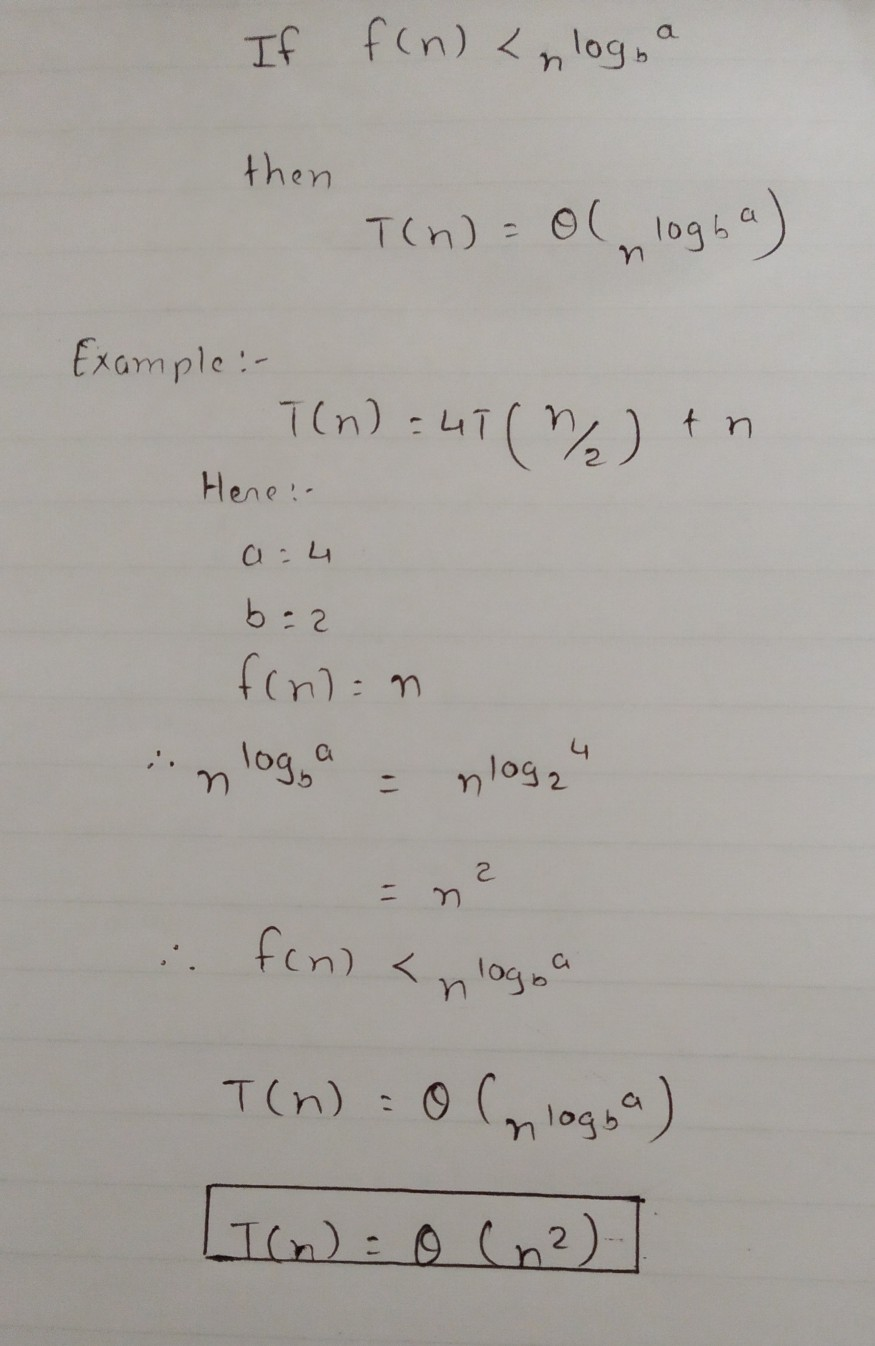 If f(n) < n^log_b^a
then
T(n) = Θ(n^log_b^a)
Example :-
T(n) = 4T(n/2) + n
Here :-
a = 4
b = 2
f(n) = n
∴ n^log_b^a = n^log_2^4
= n^2
∴ f(n) < n^log_b^a
T(n) = Θ(n^log_b^a)
T(n) = Θ(n^2)